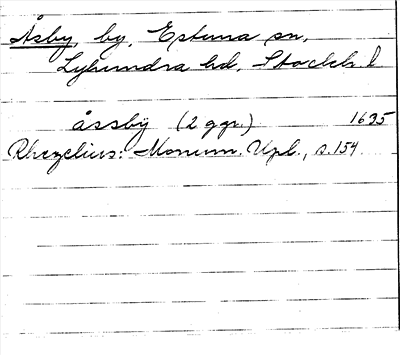 Åsby, by, Estuna sn,
Lyhundra hd, Stockh. l
åssbÿ (2 ggr.) 1635
Rhezelius: Monum. Upl., s.154